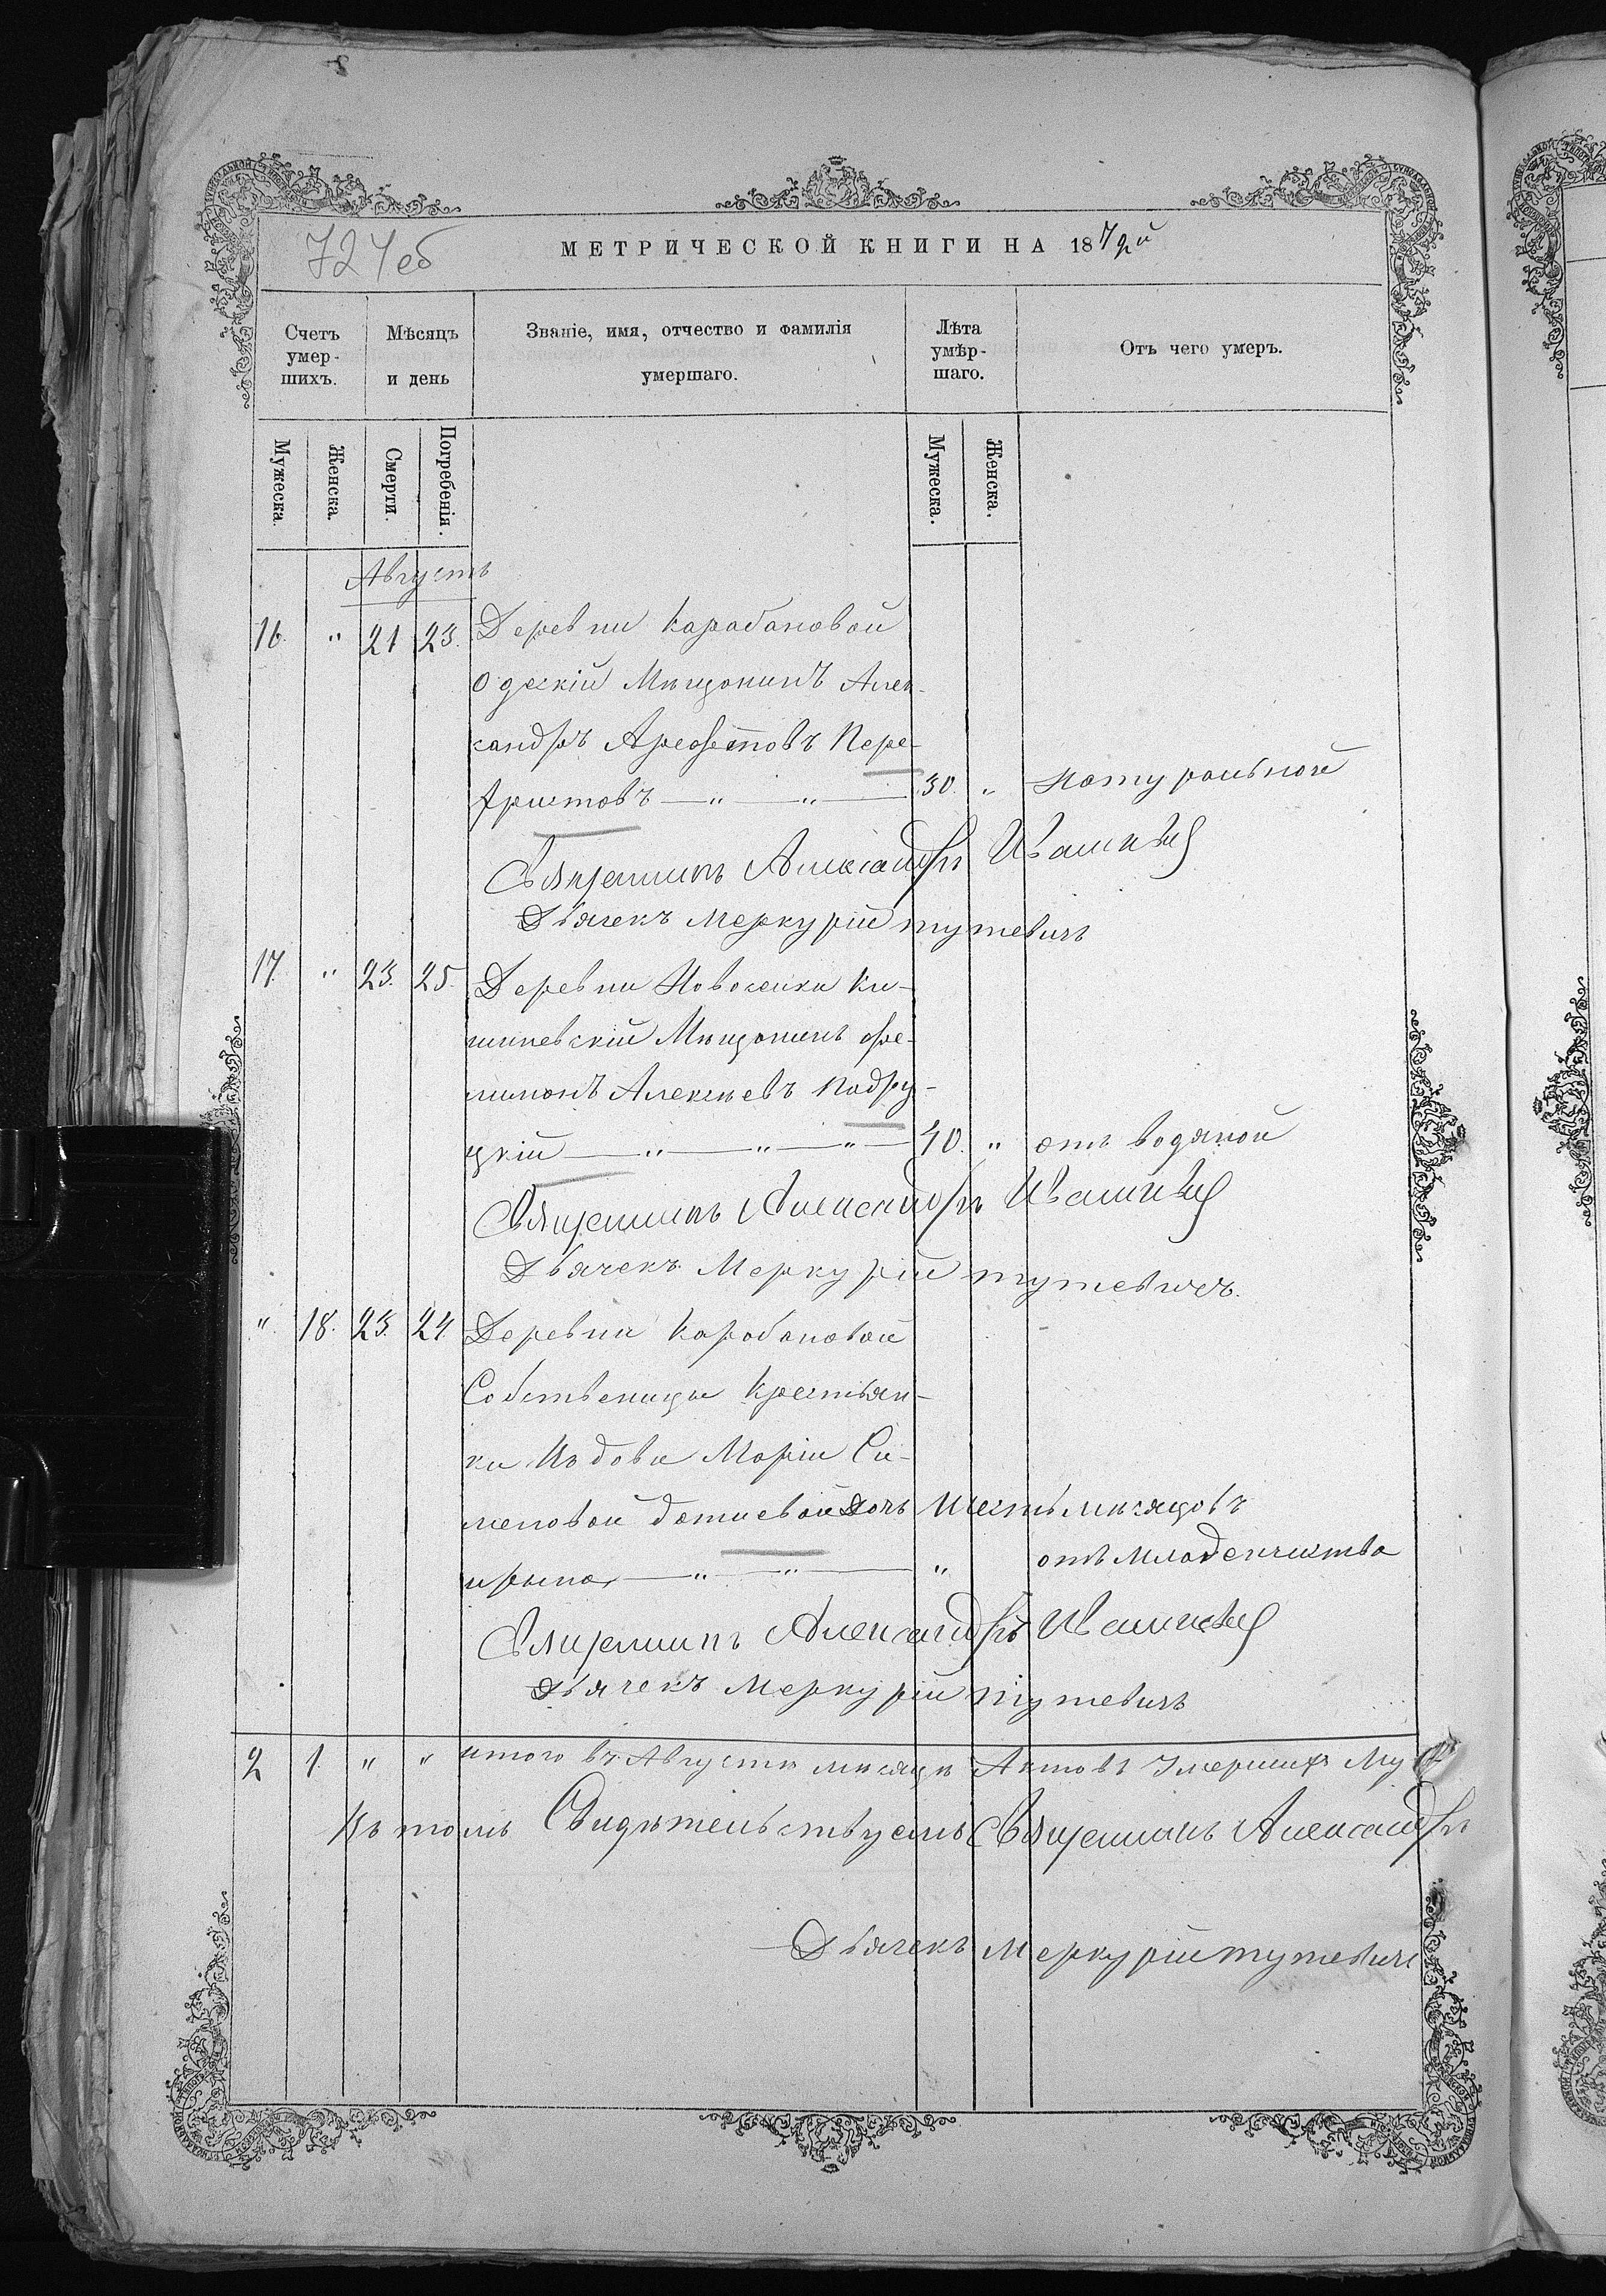 724 об
МЕТРИЧЕСКОЙ КНИГИ НА 1872й
Счетъ умер-шихъ.
Мѣсяцъ и день
Званіе, имя, отчество и фамилія умершаго.
Лѣта умѣр-шаго.
Отъ чего умеръ.
Мужеска.
Женска.
Смерти.
Погребенія.
Мужеска.
Женска.
Августъ
16. " 21 23. Деревни Карабановой
Одескій Мѣщанинъ Алек-
сандръ Пере-
Христовъ —"—"— 30. " Натуральной
Священникъ Александръ
Дьячекъ Меркурій Тутевичъ
17. " 23. 25. Деревни Новоселки Ки-
шиневскій Мѣщанинъ Фи-
лимонъ Алексѣевъ Подру-
цкій —"—"—"— 40. " отъ водяной
Священникъ Александръ
Дьячекъ Меркурій Тутевичъ.
" 18. 23. 24. Деревни Карабановой
Собственицы Крестьян-
ки Вдовы Маріи Си-
меновой дочь Шесть мѣсяцовъ
ирына —"—"— " отъ младенчества
Священникъ Александръ
Дьячекъ Меркурій Тутевичъ
2 1. " " итого въ Августѣ мѣсяцѣ Актовъ Умершихъ
Въ томъ Свидѣтельствуемъ Священникъ Александръ
Дьячекъ Меркурій Тутевичъ